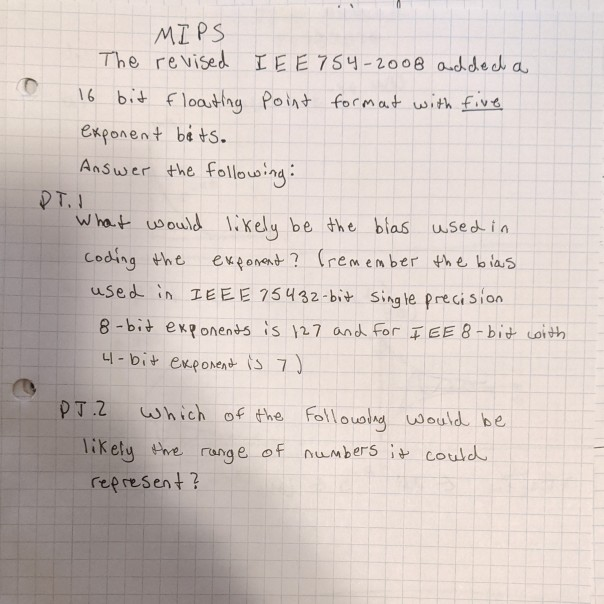 MIPS
The revised IEE754-2008 added a
16 bit floating Point format with five
exponent bits.
Answer the following:
PT.1
What would likely be the bias used in
coding the exponent? (remember the bias
used in IEEE 75432-bit single precision
8-bit exponents is 127 and for IEE 8-bit with
4-bit exponent is 7)
PT.2 Which of the Following would be
likely the range of numbers it could
represent?